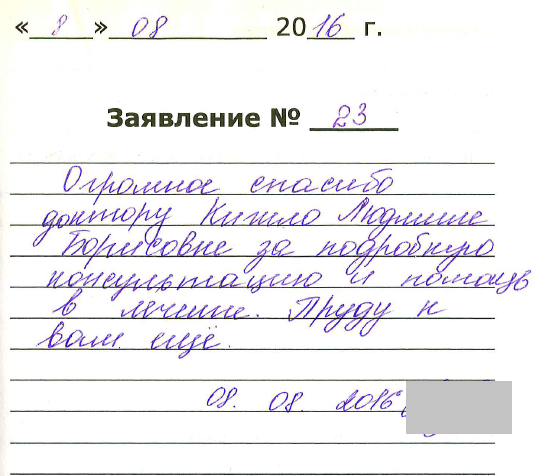 « 8 » 08 2016 г.
Заявление № 23
Огромное спасибо
доктору Кигило Людмиле
Борисовне за подробную
консультацию и помощь
в лечении. Приду к
вам ещё.
08. 08. 2016